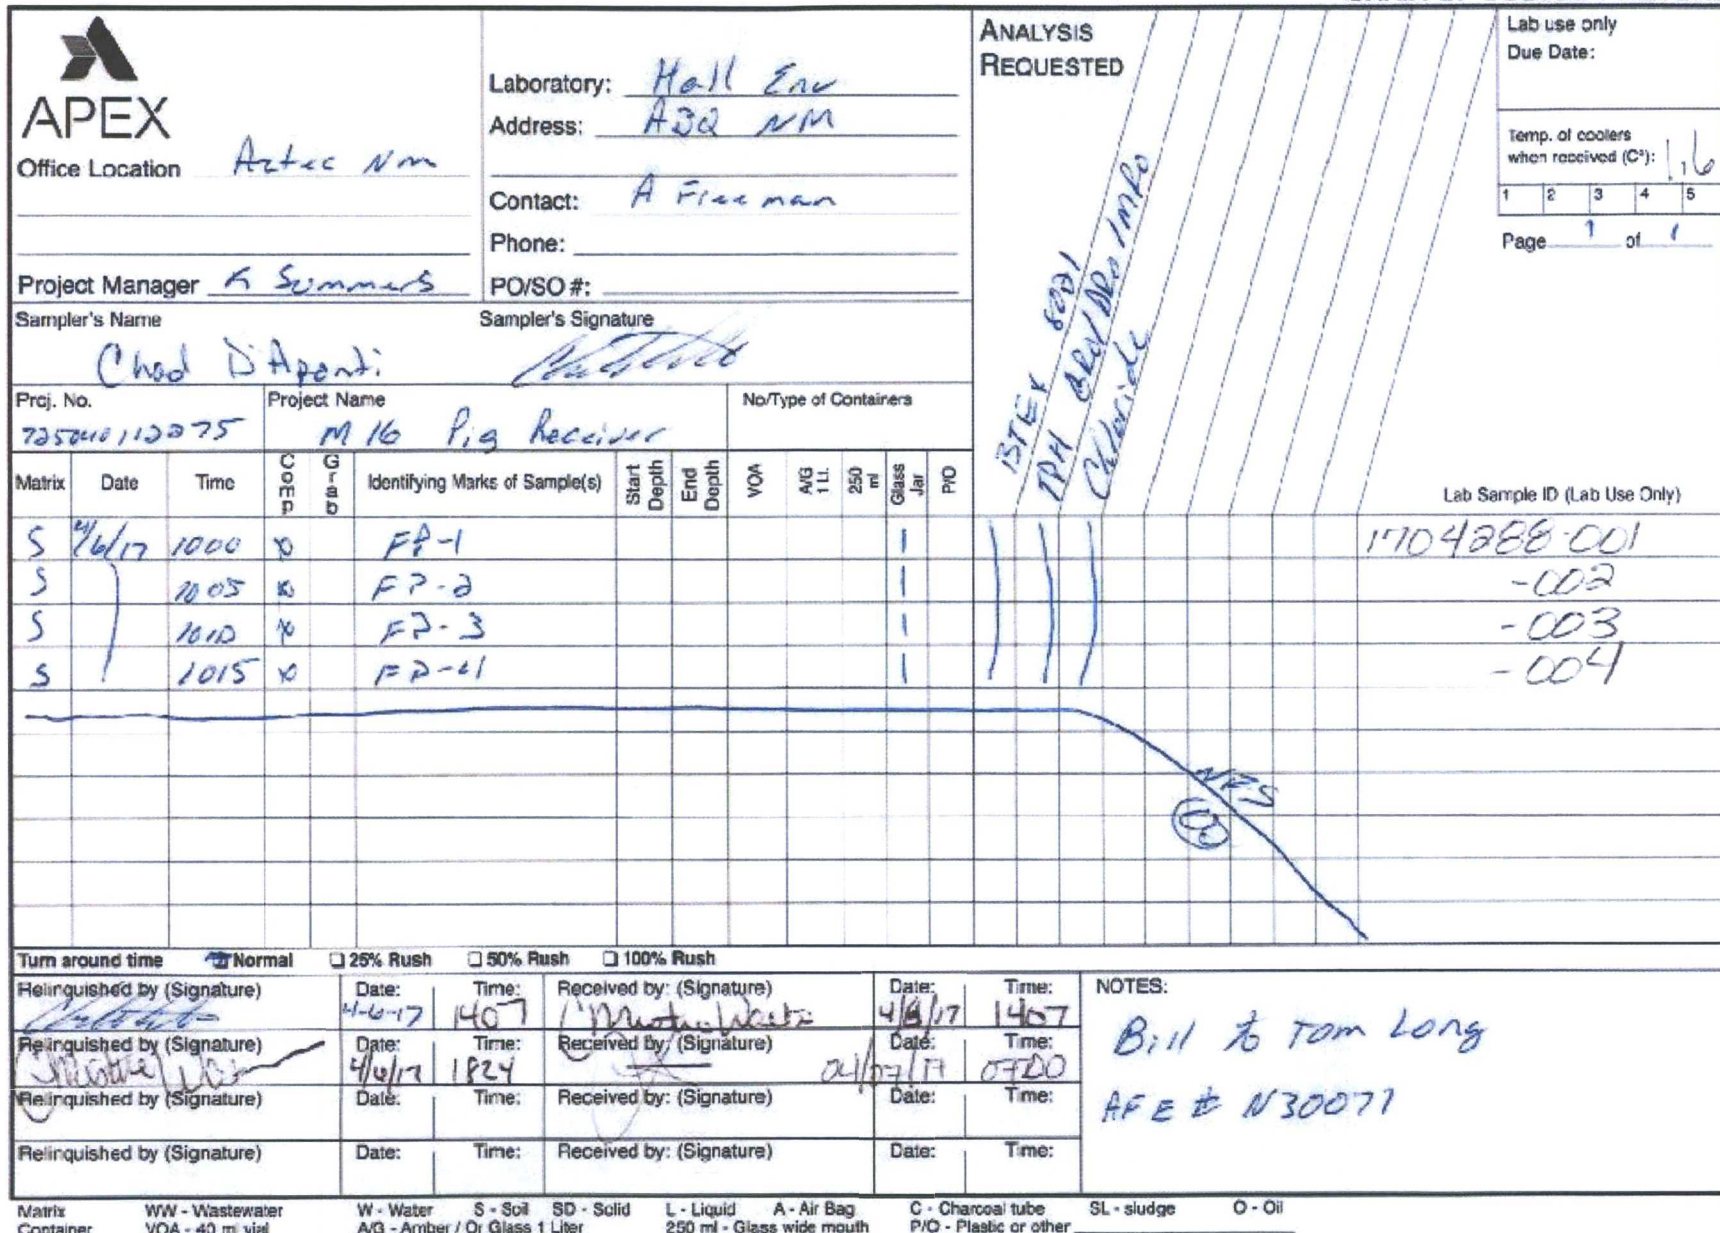 APEX
Office Location Aztec NM
Project Manager K Summers
Laboratory: Hall Env
Address: ABQ NM
Contact: A Freeman
Phone:
PO/SO #:
ANALYSIS
REQUESTED
BTEX 8021
TPH GRO/DRO/MRO
Chloride
Lab use only
Due Date:
Temp. of coolers
when received (C°): 1.6
1 2 3 4 5
Page 1 of 1
Sampler's Name
Chad D'Aponti
Sampler's Signature
Proj. No.
725040112275
Project Name
M 16 Pig Receiver
No/Type of Containers
Matrix Date Time Comp Grab Identifying Marks of Sample(s) Start Depth End Depth VOA A/G 1 Lt. 250 ml Glass Jar P/O Lab Sample ID (Lab Use Only)
S 4/6/17 1000 x FP-1 1 1704288-001
S 1005 x FP-2 1 -002
S 1010 x FP-3 1 -003
S 1015 x FP-4 1 -004
NFS
Turn around time Normal 25% Rush 50% Rush 100% Rush
Relinquished by (Signature) Date: 4-6-17 Time: 1407 Received by: (Signature) Date: 4/6/17 Time: 1407
Relinquished by (Signature) Date: 4/6/17 Time: 1824 Received by: (Signature) Date: 04/07/17 Time: 0700
Relinquished by (Signature) Date: Time: Received by: (Signature) Date: Time:
Relinquished by (Signature) Date: Time: Received by: (Signature) Date: Time:
NOTES:
Bill to Tom Long
AFE # N30077
Matrix WW - Wastewater W - Water S - Soil SD - Solid L - Liquid A - Air Bag C - Charcoal tube SL - sludge O - Oil
Container VOA - 40 ml vial A/G - Amber / Or Glass 1 Liter 250 ml - Glass wide mouth P/O - Plastic or other